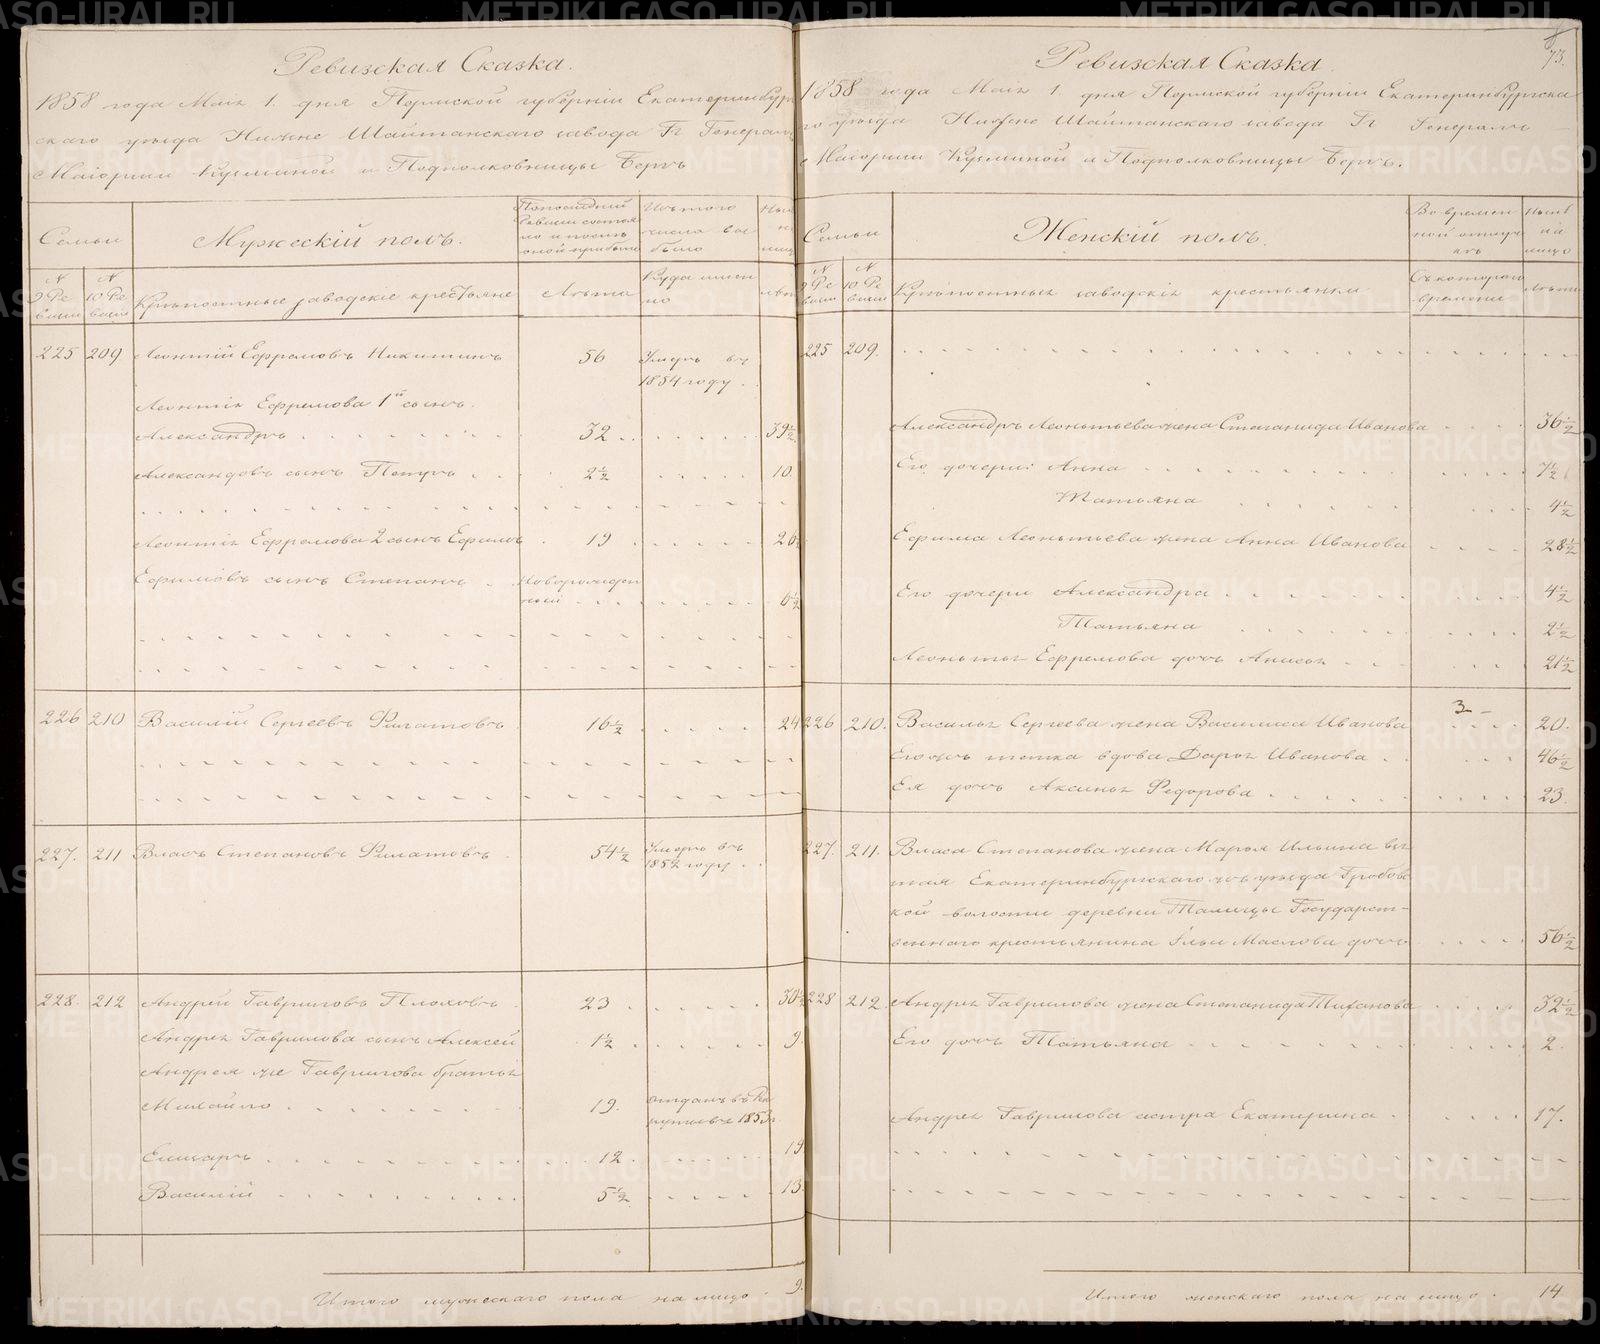 Ревизская Сказка.
1858 года Маія 1. дня Пермской губерніи Екатеринбург
скаго уезда Нижне Шайтанскаго завода Гг Генерал
Маіорши Кузминой и Подполковницы Бергъ
Семьи
Мужескій полъ.
По последней
Ревизіи состоя
ло и после
оной прибыло
Изъ того
числа вы
было
Ныне
на
лицо
N
9 Ре
визіи
N
10 Ре
визіи
Крѣпостные заводскіе крестьяне
Лѣта
Куда имен
но
лѣта
225 209 Леонтій Ефремовъ Никитинъ 56 Умеръ въ
1854 году
Леонтія Ефремова 1й сынъ
Александръ 32 39½
Александровъ сынъ Петръ 2½ 10.
Леонтія Ефремова 2 сынъ Ефимъ 19 26
Ефимовъ сынъ Степанъ Новорожден
ный 6½
226 210 Василій Сергеевъ Филатовъ 16½ 24
227. 211 Власъ Степановъ Филатовъ 54½ Умеръ въ
1852 году
228. 212 Андрей Гавриловъ Плоховъ 23 30½
Андрея Гаврилова сынъ Алексей 1½ 9.
Андрея же Гаврилова братья
Михайло 19. отданъ въ Ре
круты въ 1853 г.
Елизаръ 12 19
Василій 5½ 13.
Итого мужескаго пола на лицо 9.
73.
Ревизская Сказка
1858 года Маія 1. дня Пермской губерніи Екатеринбургска
го уезда Нижне Шайтанскаго завода Гг Генералъ
Маіорши Кузминой и Подполковницы Бергъ.
Семьи
Женскій полъ.
Во времен
ной отлуч
кѣ
Нынѣ
на
лицо
N
9 Ре
визіи
N
10 Ре
визіи
Крѣпостныя заводскія крестьянки
Съ котораго
времени
Лѣта
225 209.
Александръ Леонтьева жена Степанида Иванова 36½
Его дочери: Анна 7½
Татьяна 4½
Ефима Леонтьева жена Анна Иванова 28½
Его дочери Александра 4½
Татьяна 2½
Леонтья Ефремова дочь Анисья 21½
3
226 210. Василья Сергеева жена Василиса Иванова 20.
Его жъ тетка вдова Дарья Иванова 46½
Ея дочь Аксинья Федорова 23.
227. 211. Власа Степанова жена Марья Ильина взя
тая Екатеринбургскаго жъ уезда Гробов
кой волости деревни Талицы Государст-
веннаго крестьянина Ильи Маслова дочь 56½
228 212. Андрея Гаврилова жена Степанида Тиханова 32½
Его дочь Татьяна 2.
Андрея Гаврилова сестра Екатерина 17.
Итого женскаго пола на лицо 14
METRIKI.GASO-URAL.RU